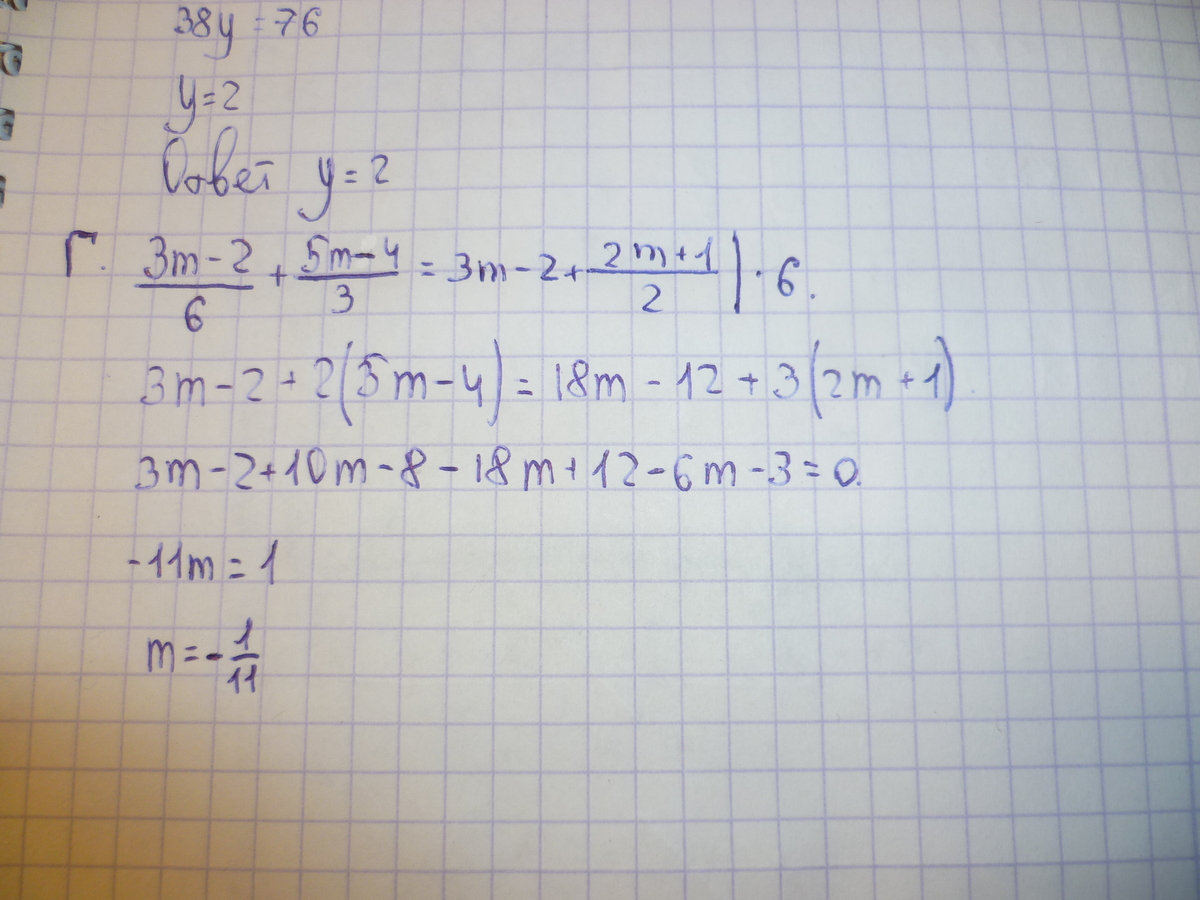 38y = 76
y = 2
Ответ y = 2
Г. (3m - 2)/6 + (5m - 4)/3 = 3m - 2 + (2m + 1)/2 | · 6.
3m - 2 + 2(5m - 4) = 18m - 12 + 3(2m + 1)
3m - 2 + 10m - 8 - 18m + 12 - 6m - 3 = 0.
-11m = 1
m = - 1/11